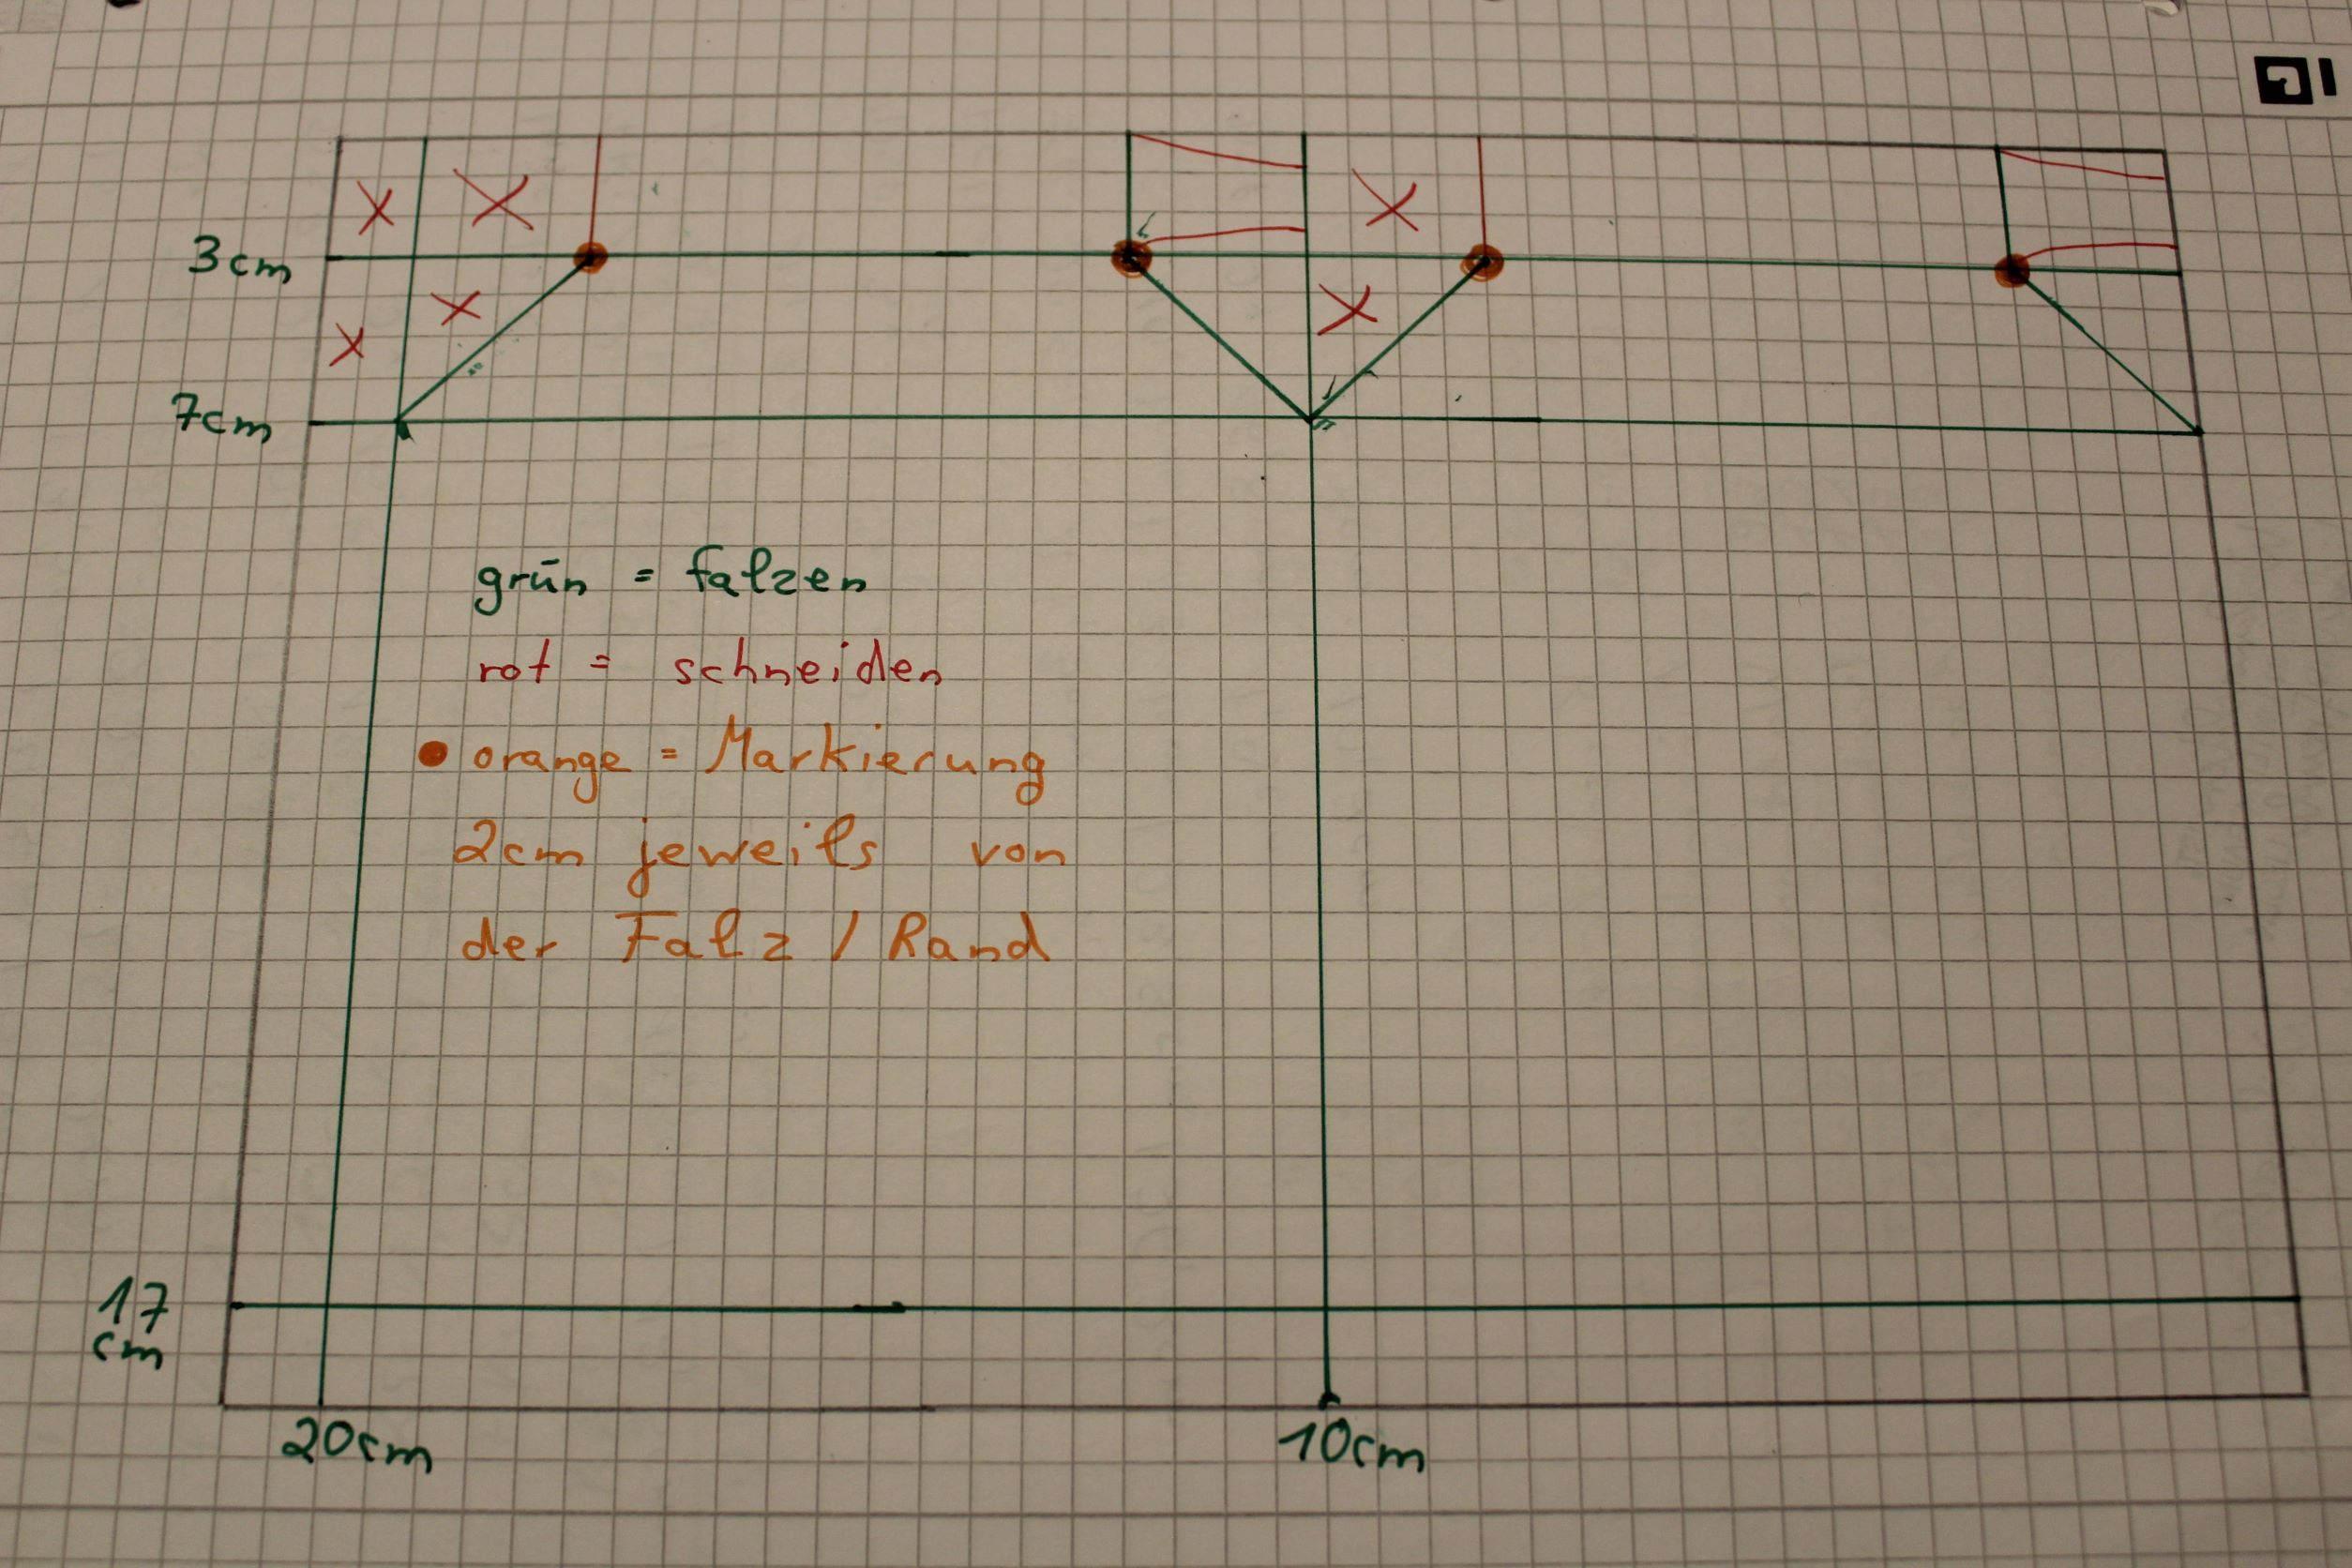 3cm
7cm
grün = falzen
rot = schneiden
orange = Markierung
2cm jeweils von
der Falz / Rand
17
cm
20cm
10cm